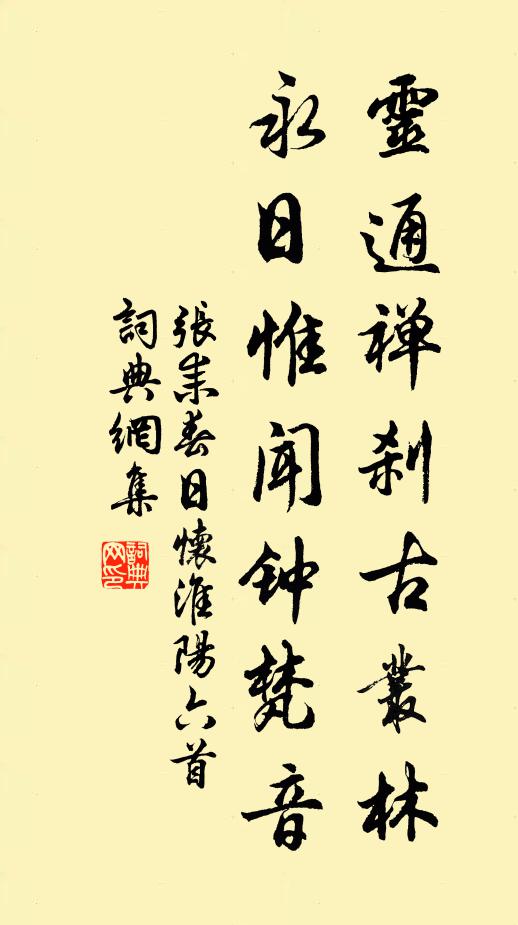 靈通禅刹古叢林
永日惟聞钟梵音
張耒春日懷淮陽六首
詞典網集
詞典網印